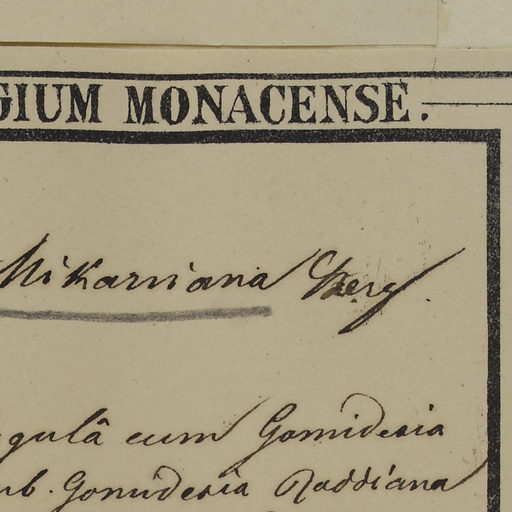 GIUM MONACENSE.
Mikaniana Berg.
gulâ cum Gomidesia
ub. Gomidesia Raddiana